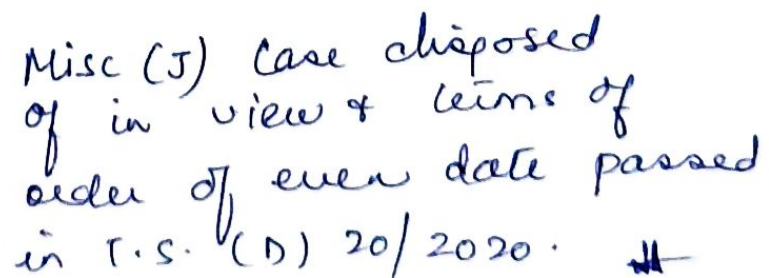 Misc (J) Case disposed
of in view & terms of
order of even date passed
in T.S. (D) 20/2020.